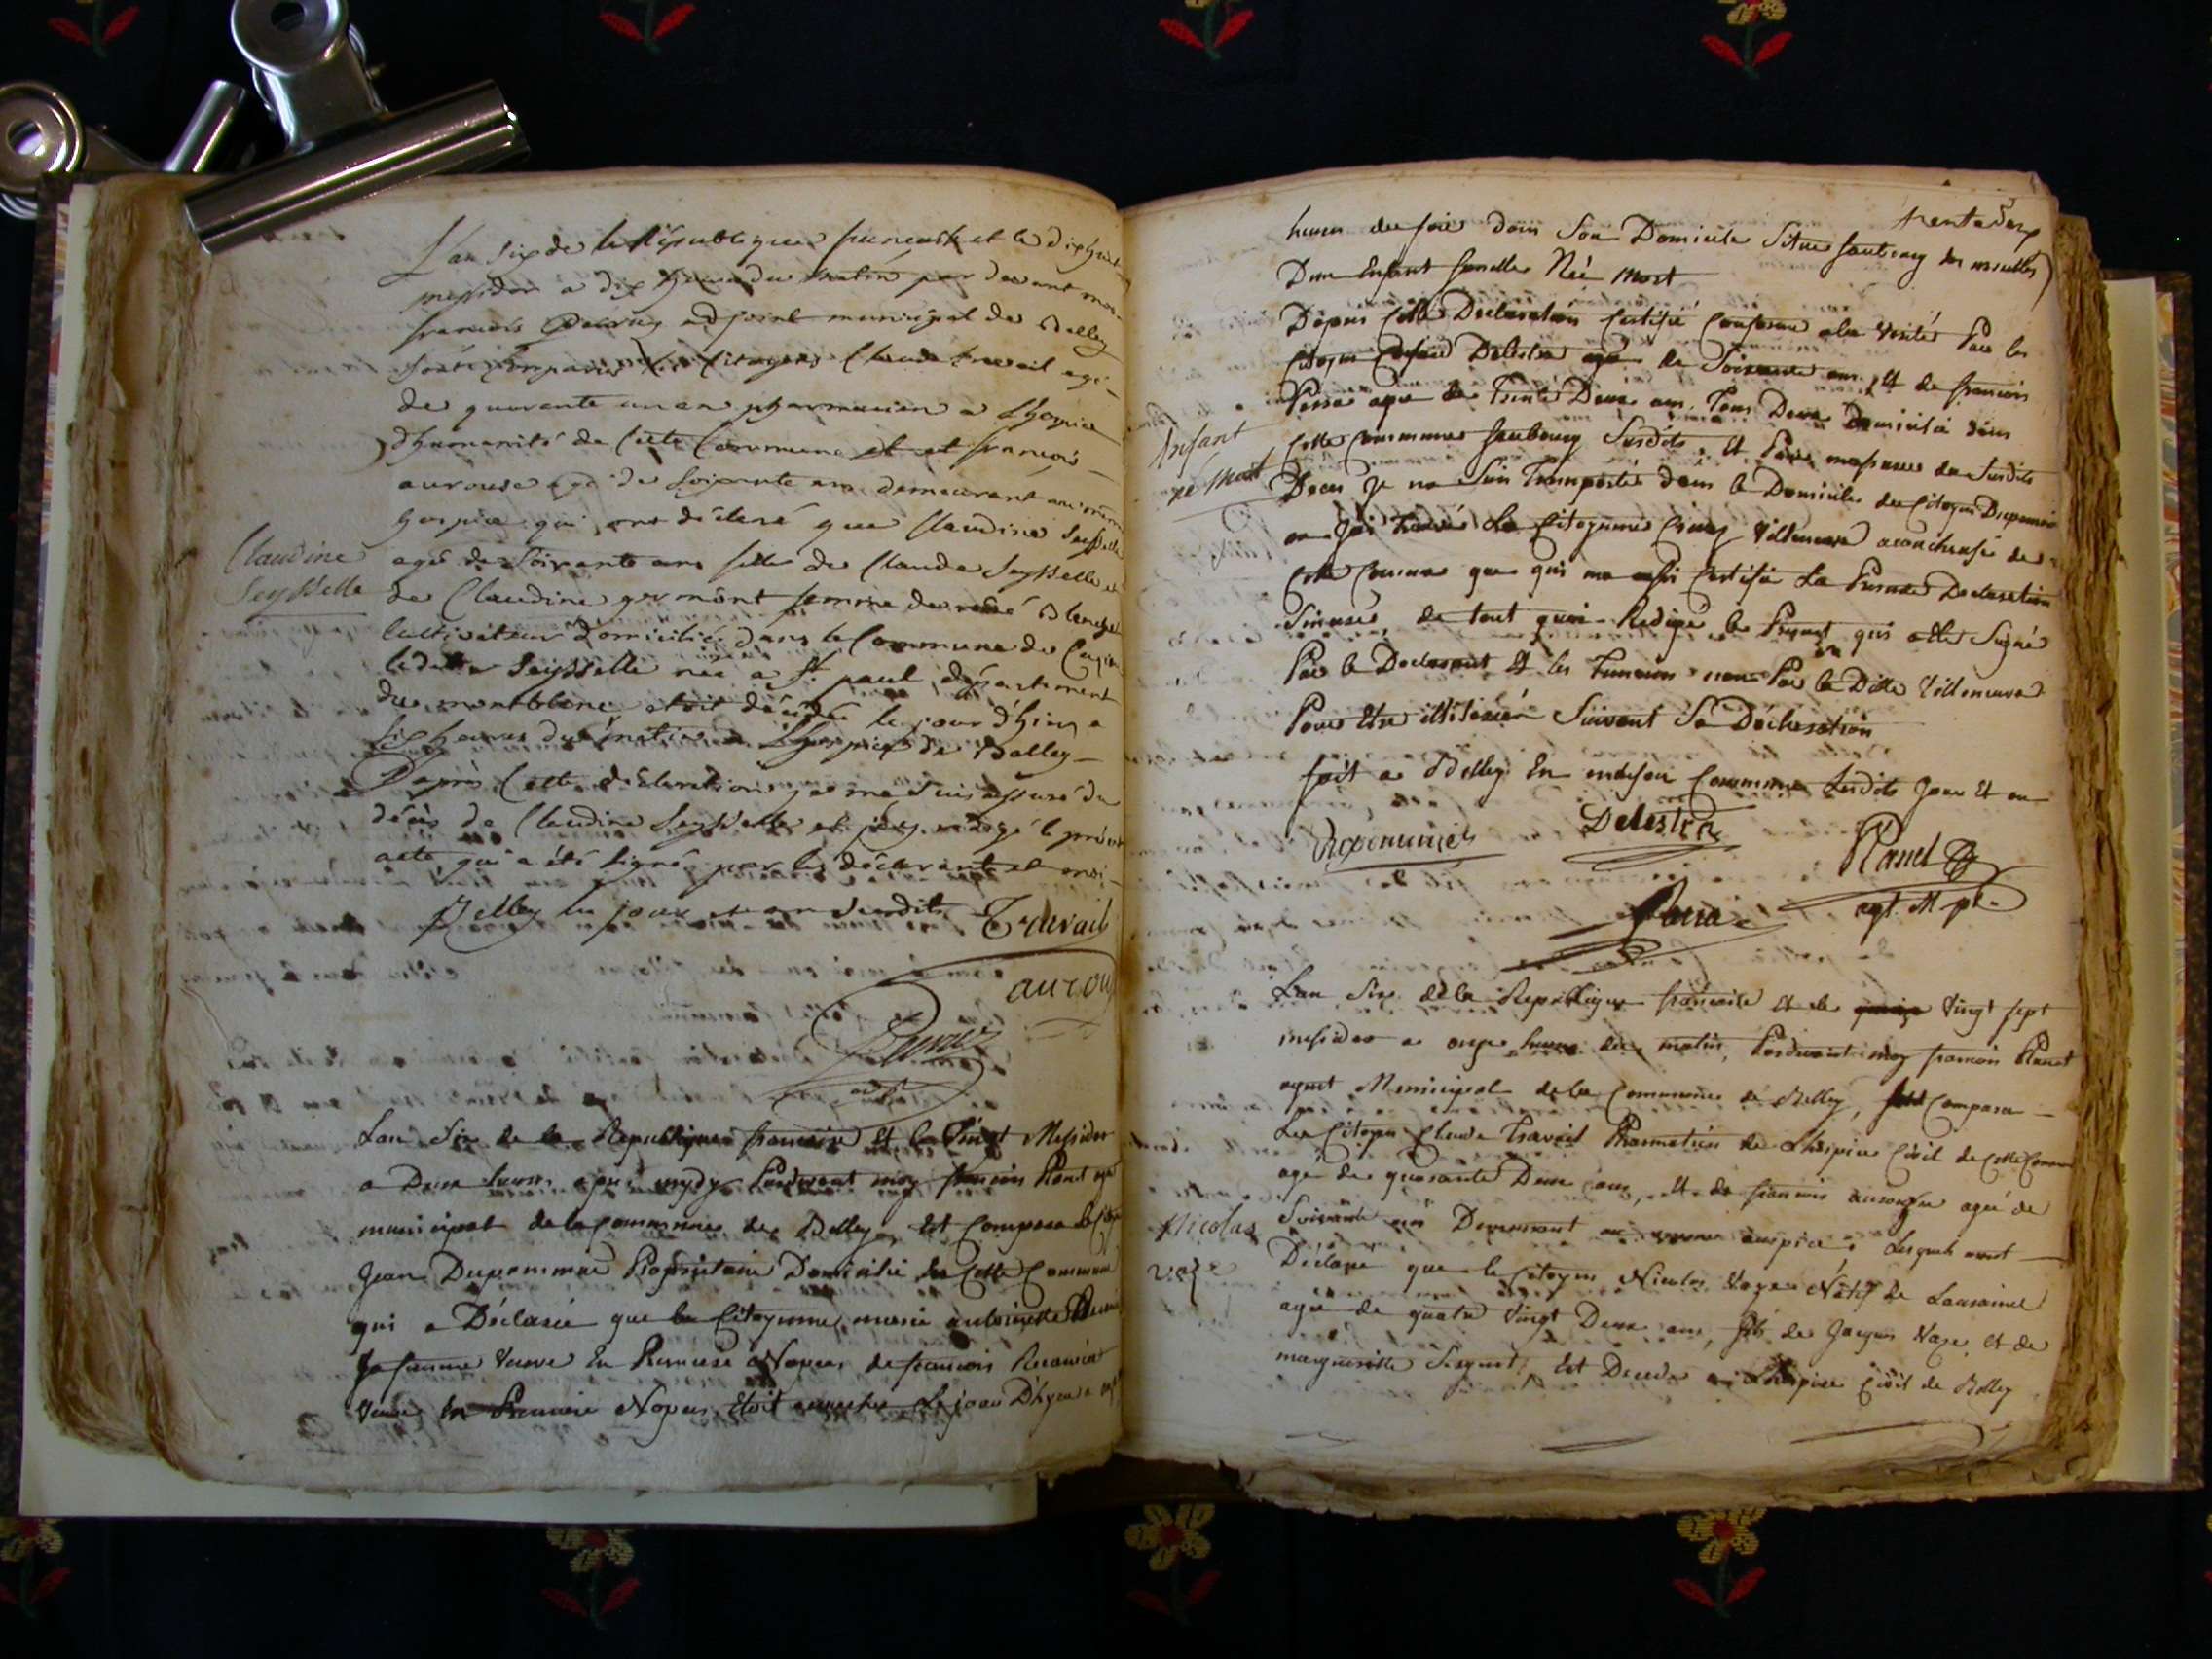 L'an six de la République française et le dix huit
messidor a dix heures du matin par devant moi
francois adjoint municipal de Belley
sont comparus les Citoyens Claude travail agé
de quarante un an pharmacien a Lhospice
d'humanité de Cette Commune et francois
aurouse agé de soixante ans demeurant au même
hospice qui ont déclaré que Claudine Seysselle
agé de soixante ans fille de Claude Seysselle et
de Claudine germont femme de
Cultivateur domicilié dans la Commune de
ladite Seysselle née a St. paul département
du montblanc etoit décédée le jour d'hier a
six heures du matin a Lhospice de Belley
D'après Cette déclaration je me suis assuré du
décès de Claudine Seysselle et j'ay rédigé le présent
acte qui a été signé par les déclarants et moi
Belley les jour et an susdits Travail
aurou
Claudine
Seysselle
Lan Six de la Republique francaise Et le Vingt Messidor
a Deux heures apres mydy Pardevant moy francois Planet agt
municipal de la commune de Belley, Est Comparu le
Jean Dupommier Propriétaire Domicilié En Cette Commune
qui a Déclaré que la Citoyenne marie antoinette
Sa femme Veuve En Premiere Nopces de francois
Veuve En Premiere Nopces, Etoit accouchée Le jour D'hyer a
trente deux
heures du soir dans Son Domicile Situé fauxbourg
Dun Enfant femelle Née Mort
Dapres Cette Declaration Certifié Conforme a la Verité Par les
Citoyen Delestra agé de Soixante ans, Et de francois
Parra agé de Trente Deux ans, Tous Deux Domicilié dans
Cette Commune fauxbourg Susdits, Et Pour massurer du Susdits
Deces Je me Suis Transporté dans le Domicile du Citoyen Dupommier
ou Jai trouvé La Citoyenne Villeneuve acoucheuse de
Cette Commune que qui ma aussi Certifié La Presente Declaration
Sincere, de tout quoi Redigé le Present qui a Eté Signé
Par le Declarant Et les Temoins non Par la Ditte Villeneuve
Pour Etre illiterée Suivant Sa Déclaration
fait a Belley En maison Commune Lesdits Jour Et an
Dupommier
Delestra
Planet
Parra
agt. M pl.
Enfant
né Mort
Lan Six de la Republique francaise Et le Vingt sept
messidor a onze heures du matin, Pardevant moy francois Planet
agent Municipal de la Commune de Belley, Comparu
Le Citoyen Claude Travail Pharmatien de Lhospice Civil de Cette Commune
agé de quarante Deux ans, Et de francois aurouze agé de
Soixante ans Demeurant au même auspice, Lesquels mont
Déclaré que le Citoyen Nicolas Vaze Natif de Lausanne
agé de quatre Vingt Deux ans, fils de Jacques Vaze, Et de
margueritte, Est Decedé a Lhospice Civil de Belley
Nicolas
vaze